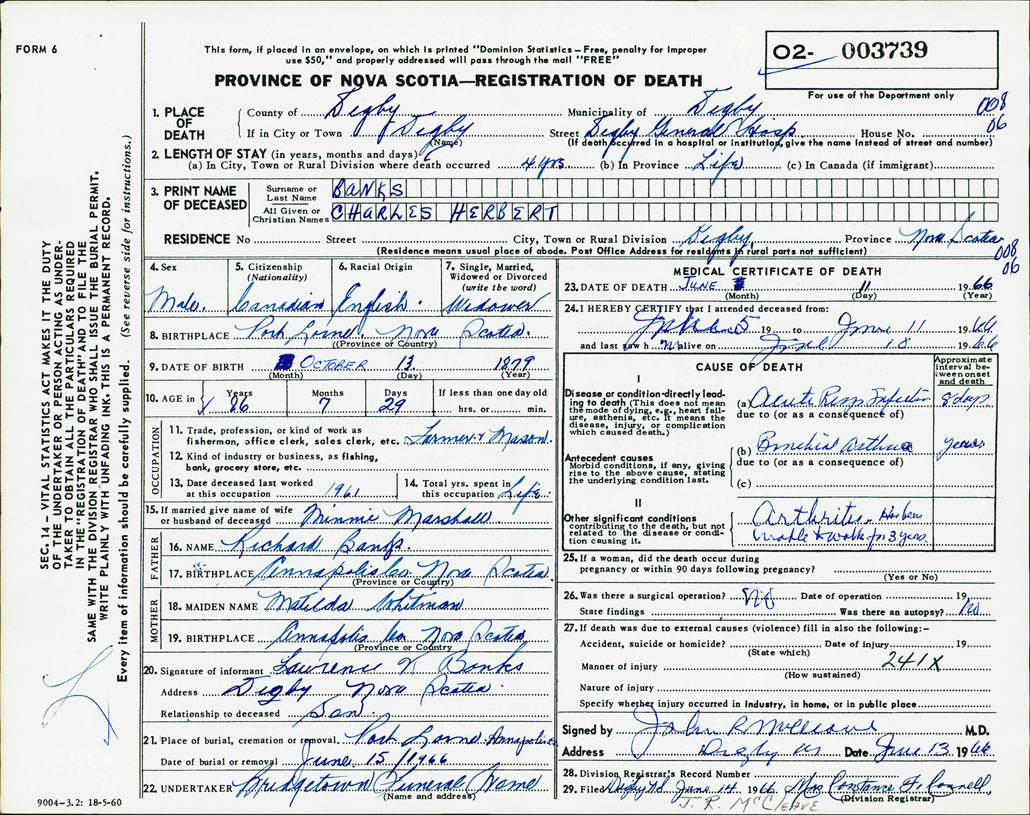 FORM 6
This form, if placed in an envelope, on which is printed "Dominion Statistics – Free, penalty for improper
use $50," and properly addressed will pass through the mail "FREE"
O2- 003739
For use of the Department only
PROVINCE OF NOVA SCOTIA—REGISTRATION OF DEATH
008
06
1. PLACE OF DEATH
County of Digby Municipality of Digby
If in City or Town Digby Street Digby General Hosp House No.
(Name) (If death occurred in a hospital or institution, give the name instead of street and number)
2. LENGTH OF STAY (in years, months and days)
(a) In City, Town or Rural Division where death occurred 4 yrs (b) In Province Life (c) In Canada (if immigrant)
3. PRINT NAME OF DECEASED
Surname or Last Name BANKS
All Given or Christian Names CHARLES HERBERT
RESIDENCE No Street City, Town or Rural Division Digby Province Nova Scotia
(Residence means usual place of abode. Post Office Address for residents in rural parts not sufficient)
008
06
4. Sex 5. Citizenship (Nationality) 6. Racial Origin 7. Single, Married, Widowed or Divorced (write the word)
Male. Canadian English. Widower
8. BIRTHPLACE Port Lorne, Nova Scotia.
(Province or Country)
9. DATE OF BIRTH OCTOBER 13 1879
(Month) (Day) (Year)
10. AGE in Years 86 Months 7 Days 29 If less than one day old
hrs. or min.
OCCUPATION
11. Trade, profession, or kind of work as
fisherman, office clerk, sales clerk, etc. Farmer & Mason.
12. Kind of industry or business, as fishing,
bank, grocery store, etc.
13. Date deceased last worked
at this occupation 1961
14. Total yrs. spent in
this occupation Life.
15. If married give name of wife
or husband of deceased Minnie Marshall.
FATHER
16. NAME Richard Banks.
17. BIRTHPLACE Annapolis Co. Nova Scotia
(Province or Country)
MOTHER
18. MAIDEN NAME Matilda Whitman
19. BIRTHPLACE Annapolis Co Nova Scotia
(Province or Country)
20. Signature of informant Lawrence K Banks
Address Digby Nova Scotia.
Relationship to deceased Son
21. Place of burial, cremation or removal Port Lorne, Annapolis
Date of burial or removal June 15/1966
22. UNDERTAKER Bridgetown Funeral Home
(Name and address)
MEDICAL CERTIFICATE OF DEATH
23. DATE OF DEATH JUNE 11 1966
(Month) (Day) (Year)
24. I HEREBY CERTIFY that I attended deceased from:
5 19 to June 11 1966
and last saw h m alive on 18 1966
CAUSE OF DEATH
Approximate interval between onset and death
I
Disease or condition directly leading to death (This does not mean the mode of dying, e.g., heart failure, asthenia, etc. It means the disease, injury, or complication which caused death.)
(a) Acute Resp. Infection 8 days
due to (or as a consequence of)
Antecedent causes
Morbid conditions, if any, giving rise to the above cause, stating the underlying condition last.
(b) Bronchial Asthma years
due to (or as a consequence of)
(c)
II
Other significant conditions
contributing to the death, but not related to the disease or condition causing it.
Arthritis. Has been
unable to walk for 3 years.
25. If a woman, did the death occur during
pregnancy or within 90 days following pregnancy?
(Yes or No)
26. Was there a surgical operation? No Date of operation 19
State findings Was there an autopsy? No
27. If death was due to external causes (violence) fill in also the following:–
Accident, suicide or homicide? Date of injury 19
(State which)
Manner of injury 241X
(How sustained)
Nature of injury
Specify whether injury occurred in industry, in home, or in public place
Signed by John R McCleave M.D.
Address Digby NS Date June 13 1966
28. Division Registrar's Record Number
29. Filed Digby NS June 14 1966 Mrs Constance F. Connell,
J. R. McCLEAVE (Division Registrar)
SEC. 14 – VITAL STATISTICS ACT MAKES IT THE DUTY
OF THE UNDERTAKER OR PERSON ACTING AS UNDER-
TAKER TO OBTAIN ALL THE PARTICULARS REQUIRED
IN THE "REGISTRATION OF DEATH" AND TO FILE THE
SAME WITH THE DIVISION REGISTRAR WHO SHALL ISSUE THE BURIAL PERMIT.
WRITE PLAINLY WITH UNFADING INK. THIS IS A PERMANENT RECORD.
Every item of information should be carefully supplied. (See reverse side for instructions.)
9004-3.2: 18-5-60